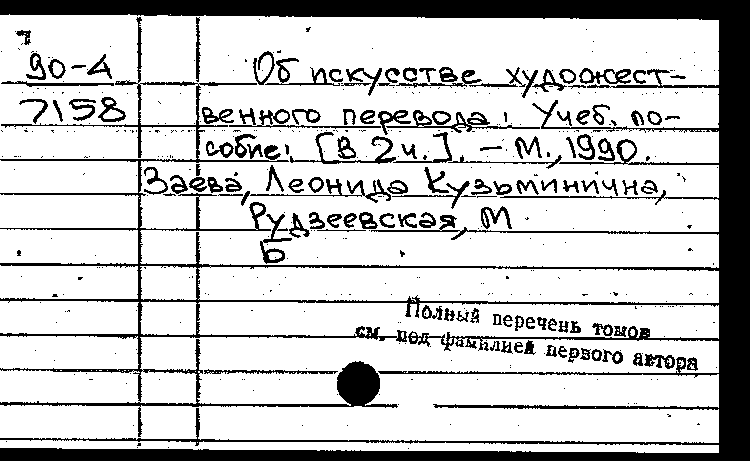 90-4
7158
Об искусстве художест-
венного перевода: Учеб. по-
собие: [В 2 ч.]. - М., 1990.
Заева, Леонида Кузьминична,
Рудзеевская, М
Б
Полный перечень томов
см. под фамилией первого автора